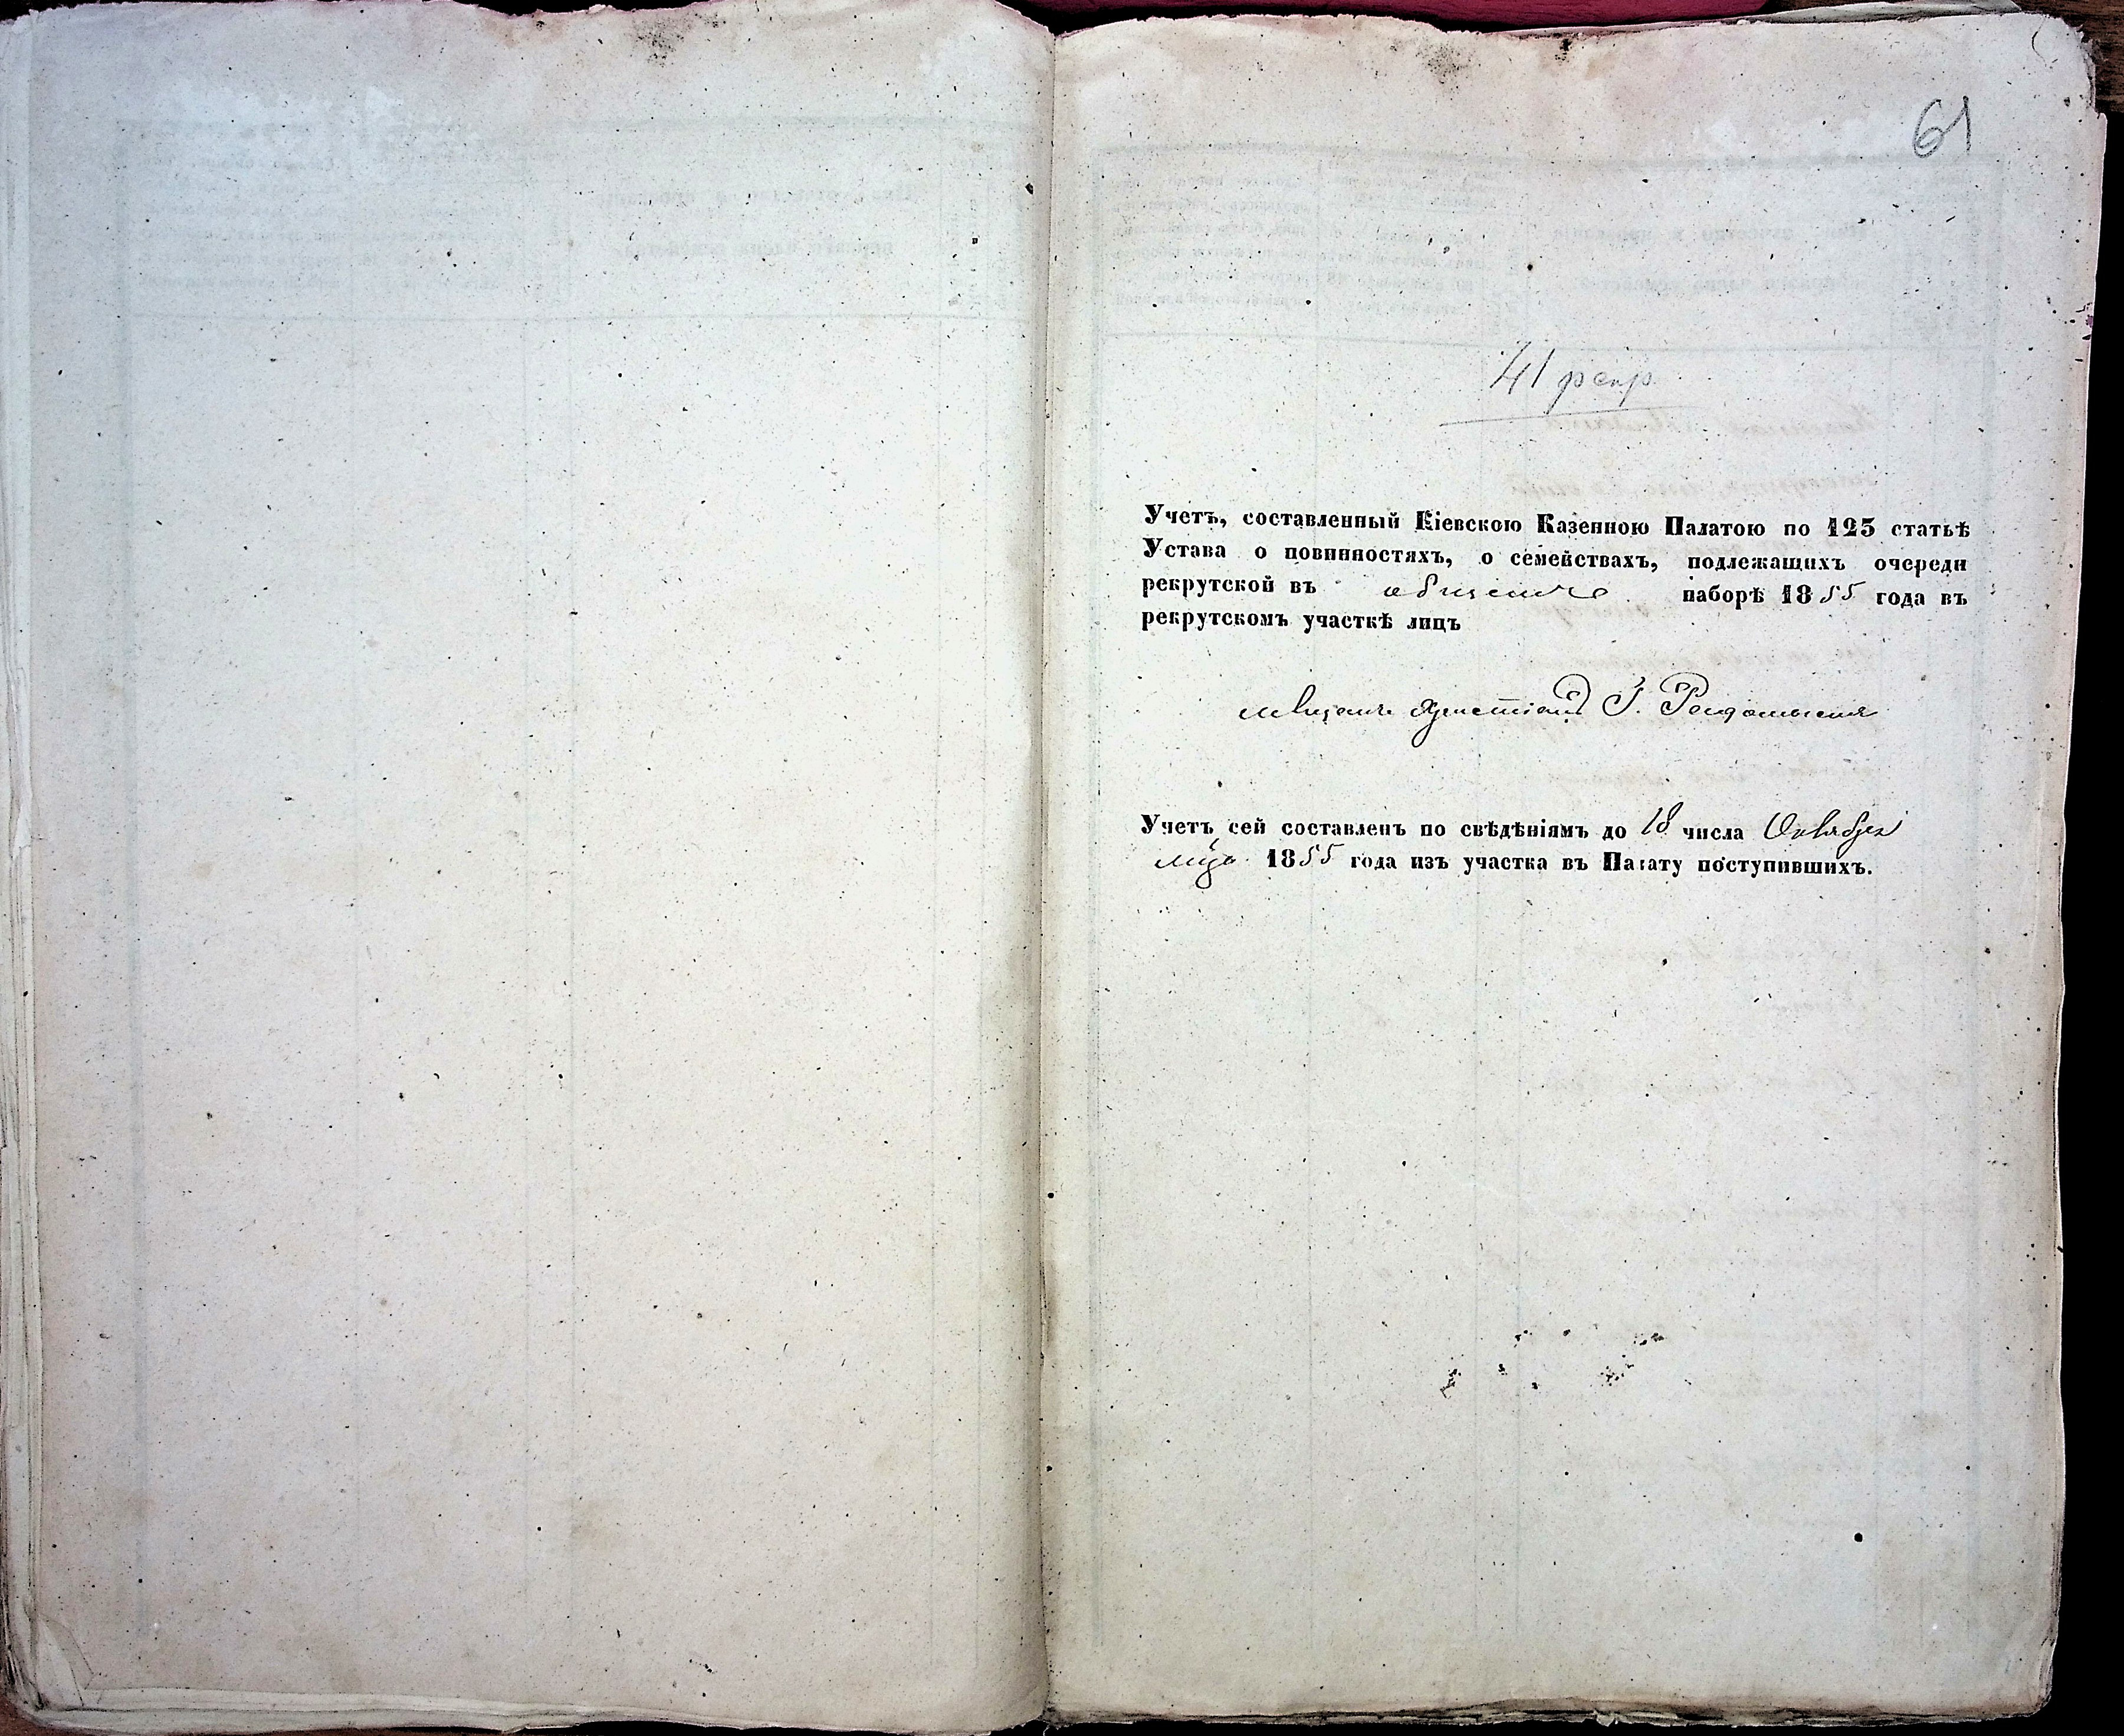 61
41
Учетъ, составленный Кіевскою Казенною Палатою по 125 статьѣ
Устава о повинностяхъ, о семействахъ, подлежащихъ очереди
рекрутской въ общемъ наборѣ 1855 года въ
рекрутскомъ участкѣ лицъ
мѣщанъ христіанъ г. Радомысля
Учетъ сей составленъ по свѣдѣніямъ до 18 числа Октября
мца 1855 года изъ участка въ Палату поступившихъ.